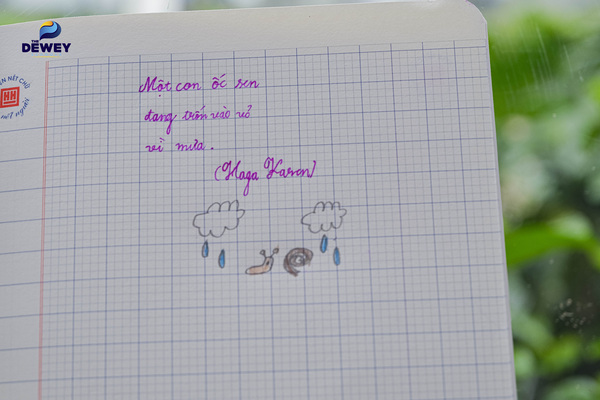 THE
DEWEY
Một con ốc sen
đang trốn vào vỏ
vì mưa.
(Haga Karen)
HH